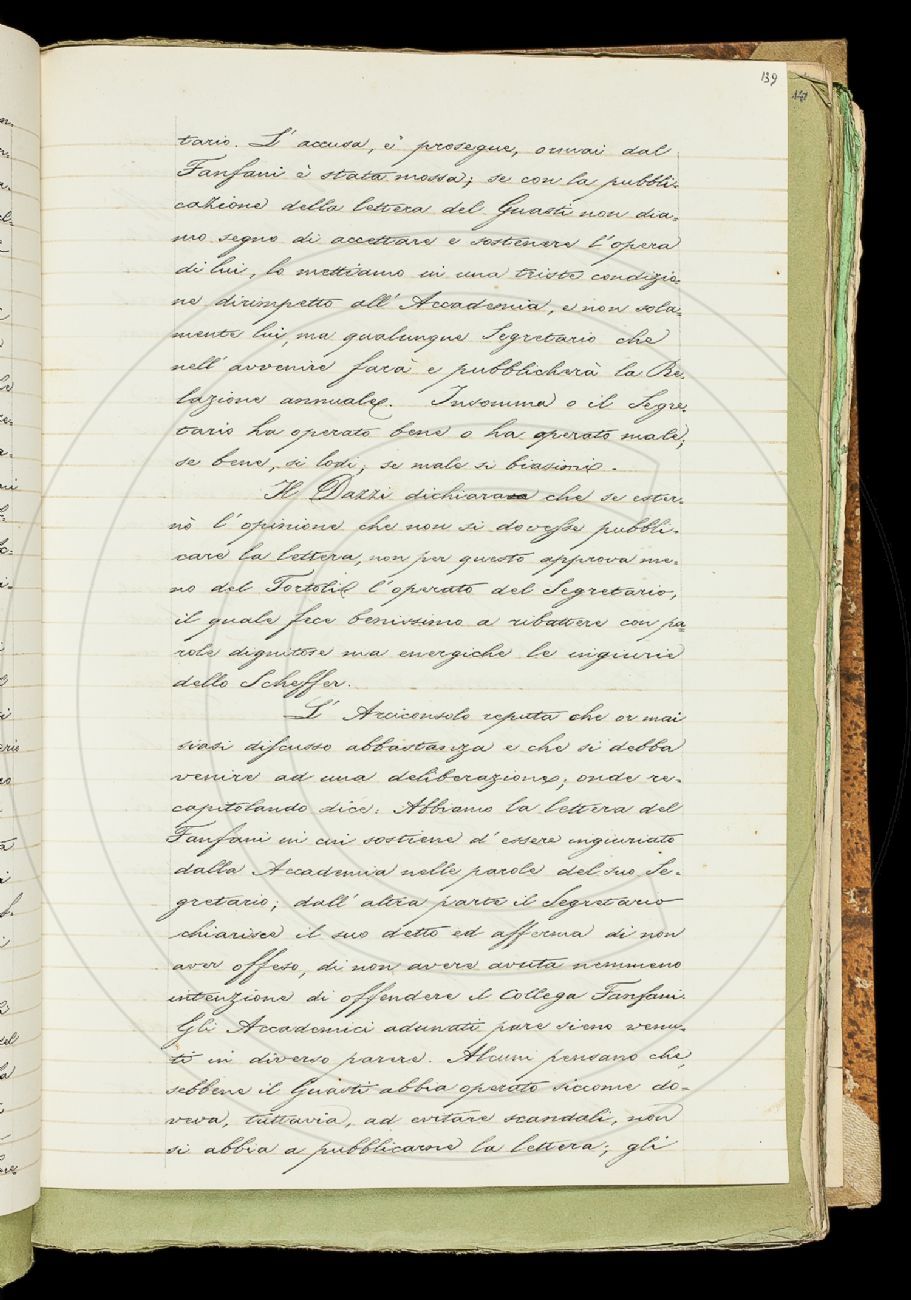 139
tario. L'accusa, è prosegue, ormai dal
Fanfani è stata mossa; se con la pubbli-
cazione della lettera del Guasti non dia-
mo segno di accettare e sostenere l'opera
di lui, lo mettiamo in una triste condizio-
ne dirimpetto all'Accademia, e non sola-
mente lui, ma qualunque Segretario che
nell'avvenire farà e pubblicherà la Re-
lazione annuale. Insomma o il Segre-
tario ha operato bene o ha operato male;
se bene, si lodi; se male si biasimi.
Il Dazzi dichiara che se ester-
nò l'opinione che non si dovesse pubbli-
care la lettera, non per questo approva me-
no del Tortoli l'operato del Segretario,
il quale fece benissimo a ribattere con pa-
role dignitose ma energiche le ingiurie
dello Scheffer.
L'Arciconsolo reputa che or mai
siasi discusso abbastanza e che si debba
venire ad una deliberazione; onde re-
capitolando dice: Abbiamo la lettera del
Fanfani in cui sostiene d'essere ingiuriato
dalla Accademia nelle parole del suo Se-
gretario; dall'altra parte il Segretario
chiarisce il suo detto ed afferma di non
aver offeso, di non avere avuta nemmeno
intenzione di offendere il Collega Fanfani.
Gli Accademici adunati pare sieno venu-
ti in diverso parere. Alcuni pensano che,
sebbene il Guasti abbia operato siccome do-
veva, tuttavia, ad evitare scandali, non
si abbia a pubblicarne la lettera; gli